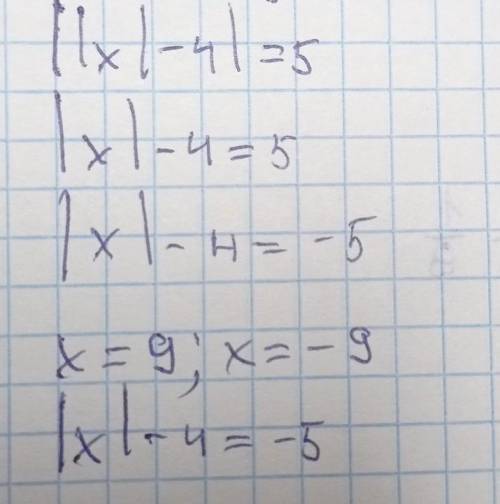 ||x|-4|=5
|x|-4=5
|x|-4=-5
x=9; x=-9
|x|-4=-5